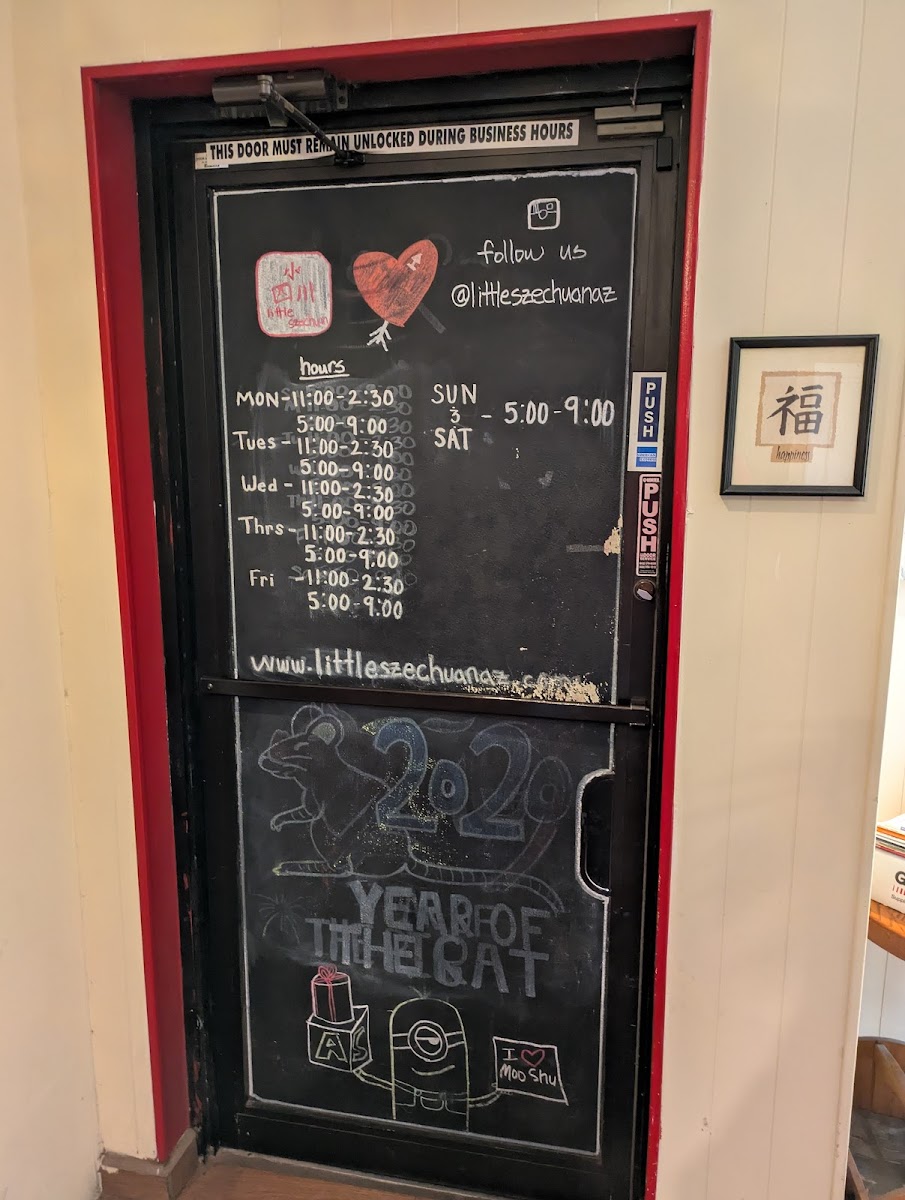 THIS DOOR MUST REMAIN UNLOCKED DURING BUSINESS HOURS
小
四川
little
szechuan
follow us
@littleszechuanaz
hours
MON-11:00-2:30
5:00-9:00
Tues-11:00-2:30
5:00-9:00
Wed-11:00-2:30
5:00-9:00
Thrs-11:00-2:30
5:00-9:00
Fri-11:00-2:30
5:00-9:00
SUN
&
SAT
- 5:00-9:00
PUSH
AMERICAN EXPRESS
PUSH
福
happiness
www.littleszechuanaz.com
2020
YEAR OF
THE RAT
A S
I ♡
Moo Shu
G